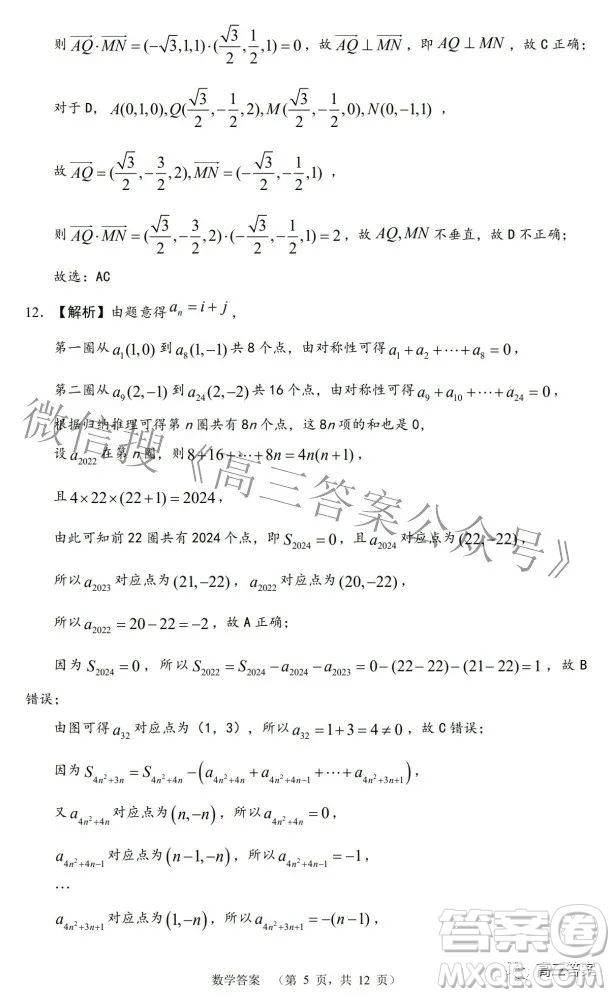 则 $\overrightarrow{AQ}\cdot\overrightarrow{MN}=(-\sqrt{3},1,1)\cdot(\frac{\sqrt{3}}{2},\frac{1}{2},1)=0$，故 $\overrightarrow{AQ}\perp\overrightarrow{MN}$，即 $AQ\perp MN$，故 C 正确；
对于 D，$A(0,1,0),Q(\frac{\sqrt{3}}{2},-\frac{1}{2},2),M(\frac{\sqrt{3}}{2},-\frac{1}{2},0),N(0,-1,1)$，
故 $\overrightarrow{AQ}=(\frac{\sqrt{3}}{2},-\frac{3}{2},2),\overrightarrow{MN}=(-\frac{\sqrt{3}}{2},-\frac{1}{2},1)$，
则 $\overrightarrow{AQ}\cdot\overrightarrow{MN}=(\frac{\sqrt{3}}{2},-\frac{3}{2},2)\cdot(-\frac{\sqrt{3}}{2},-\frac{1}{2},1)=2$，故 $AQ,MN$ 不垂直，故 D 不正确；
故选：AC
12．【解析】由题意得 $a_n=i+j$，
第一圈从 $a_1(1,0)$ 到 $a_8(1,-1)$ 共 8 个点，由对称性可得 $a_1+a_2+\cdots+a_8=0$，
第二圈从 $a_9(2,-1)$ 到 $a_{24}(2,-2)$ 共 16 个点，由对称性可得 $a_9+a_{10}+\cdots+a_{24}=0$，
根据归纳推理可得第 n 圈共有 8n 个点，这 8n 项的和也是 0，
设 $a_{2022}$ 在第 n 圈，则 $8+16+\cdots+8n=4n(n+1)$，
且 $4\times22\times(22+1)=2024$，
由此可知前 22 圈共有 2024 个点，即 $S_{2024}=0$，且 $a_{2024}$ 对应点为 $(22,-22)$，
所以 $a_{2023}$ 对应点为 $(21,-22)$，$a_{2022}$ 对应点为 $(20,-22)$，
所以 $a_{2022}=20-22=-2$，故 A 正确；
因为 $S_{2024}=0$，所以 $S_{2022}=S_{2024}-a_{2024}-a_{2023}=0-(22-22)-(21-22)=1$，故 B
错误；
由图可得 $a_{32}$ 对应点为（1，3），所以 $a_{32}=1+3=4\neq0$，故 C 错误；
因为 $S_{4n^2+3n}=S_{4n^2+4n}-\left(a_{4n^2+4n}+a_{4n^2+4n-1}+\cdots+a_{4n^2+3n+1}\right)$，
又 $a_{4n^2+4n}$ 对应点为 $(n,-n)$，所以 $a_{4n^2+4n}=0$，
$a_{4n^2+4n-1}$ 对应点为 $(n-1,-n)$，所以 $a_{4n^2+4n-1}=-1$，
…
$a_{4n^2+3n+1}$ 对应点为 $(1,-n)$，所以 $a_{4n^2+3n+1}=-(n-1)$，
数学答案 （第 5 页，共 12 页）
微信搜《高三答案公众号》
高三答案
答案圈
MXQE.COM